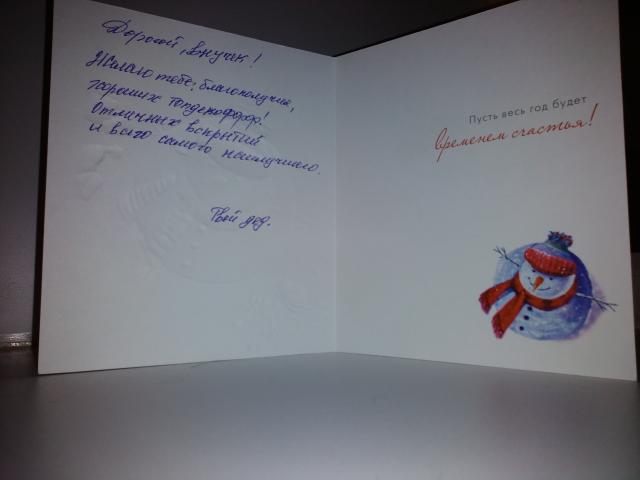 Дорогой, внучек!
Желаю тебе: благополучия,
хороших
Отличных вскрытий
и всего самого наилучшего.
Твой дед.
Пусть весь год будет
временем счастья!